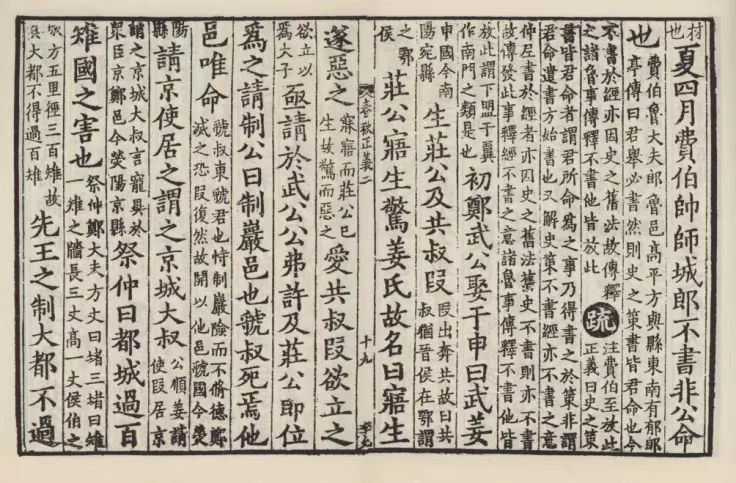 材
也
夏四月費伯帥師城郎不書非公命
也
費伯魯大夫郎魯邑高平方與縣東南有郁郎
亭傳曰君舉必書然則史之策書皆君命也今
不書於經亦因史之舊法故傳釋
之諸魯事傳釋不書他皆放此
疏
注費伯至放此
正義曰史之策
書皆君命者謂君所命爲之事乃得書之於策非謂
君命遺書方始書也又解史策不書經亦不書之意
仲尼書於經者亦因史之舊法舊史不書則亦不書
故傳發此事釋經不書之意諸魯事傳釋不書他皆
放此謂下盟于翼
作南門之類是也
初鄭武公娶于申曰武姜
申國今南
陽宛縣
生莊公及共叔段
段出奔共故曰共
叔猶晉侯在鄂謂
之鄂
侯
莊公寤生驚姜氏故名曰寤生
春秋正義二
十九
遂惡之
寐寤而莊公已
生故驚而惡之
愛共叔段欲立之
欲立以
爲大子
亟請於武公公弗許及莊公即位
爲之請制公曰制巖邑也虢叔死焉他
邑唯命
虢叔東虢君也恃制巖險而不脩德鄭
滅之恐段復然故開以他邑虢國今熒
陽
縣
請京使居之謂之京城大叔
公順姜請
使段居京
謂之京城大叔言寵異於
眾臣京鄭邑今熒陽京縣
祭仲曰都城過百
雉國之害也
祭仲鄭大夫方丈曰堵三堵曰雉
一雉之牆長三丈高一丈侯伯之
城方五里徑三百雉故
其大都不得過百雉
先王之制大都不過